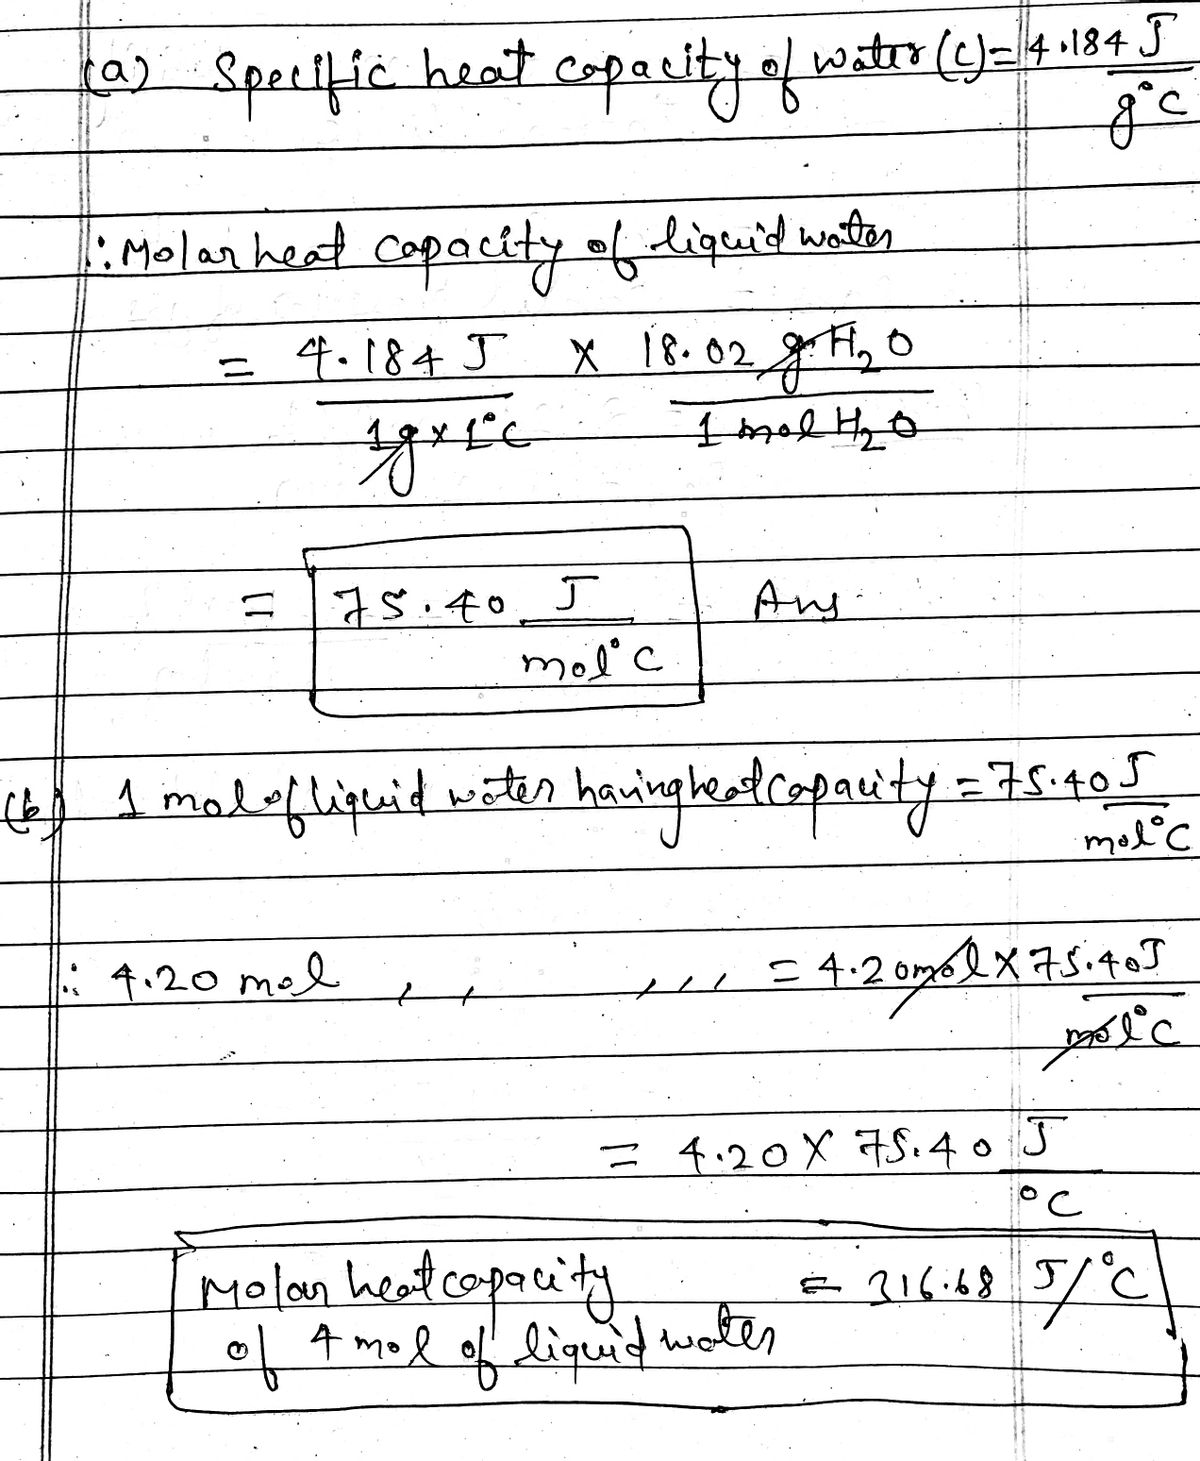 (a) Specific heat capacity of water (c) = 4.184 J
g°C
∴ Molar heat capacity of liquid water
= 4.184 J × 18.02 g H₂O
1g × 1°C 1 mol H₂O
= 75.40 J Ans.
mol°C
(b) 1 mol of liquid water having heat capacity = 75.40 J
mol°C
∴ 4.20 mol , , , , , = 4.20 mol × 75.40 J
mol°C
= 4.20 × 75.40 J
°C
Molar heat capacity = 316.68 J/°C
of 4 mol of liquid water